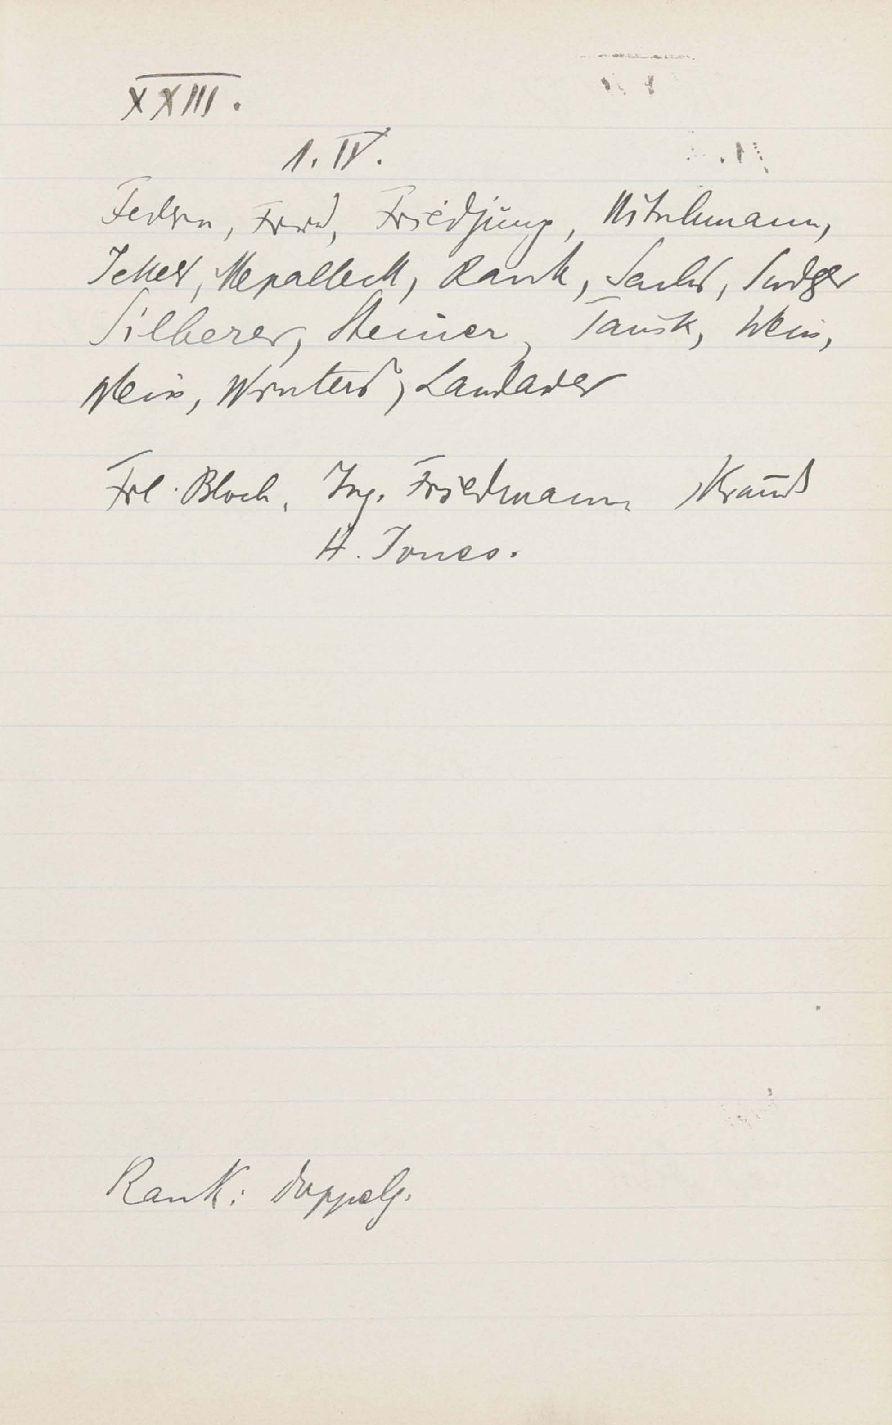 XXIII.
1. IV.
Federn, Freud, Friedjung, Hitschmann,
Jekels, Nepalleck, Rank, Sachs, Sadger
Silberer, Steiner, Tausk, Weiss,
Weiss, Winterst, Landauer
Frl. Bloch, Ing. Friedmann, Krauss
H. Jones.
Rank: Doppelg.